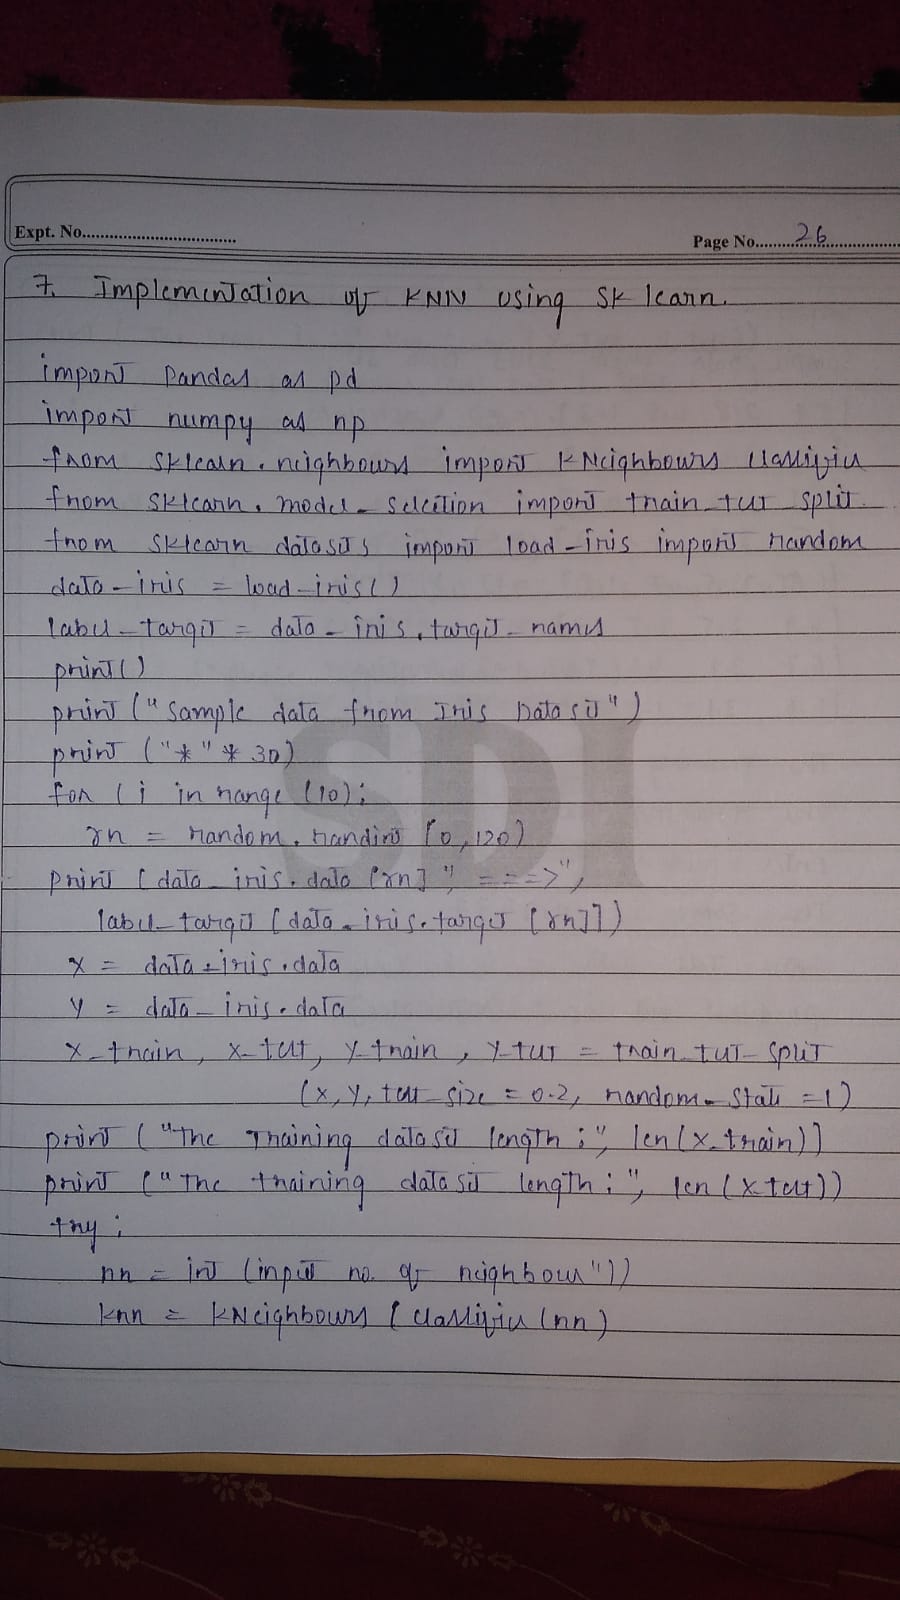 Expt. No.
Page No. 26
7. Implementation of KNN using SK learn.
import pandas as pd
import numpy as np
from sklearn.neighbours import KNeighbours classifier
from sklearn.model_selection import train_test split.
from sklearn datasets import load_iris import random
data_iris = load_iris()
label_target = data_iris.target_names
print()
print("Sample data from Iris Dataset")
print ("*" * 30)
for (i in range (10):
rn = random.randint [0,120)
print [data_iris.data [rn] ", ===>",
label_target [data_iris.target [rn]])
x = data_iris.data
y = data_iris.data
x_train, x_test, y_train, y_test = train_test_split
(x, y, test_size = 0.2, random_state = 1)
print ("The Training dataset length:", len(x_train)]
print ("The training dataset length:", len (x_test))
try:
nn = int (input no. of neighbour"))
knn = KNeighbours (classifier (nn)
SDI